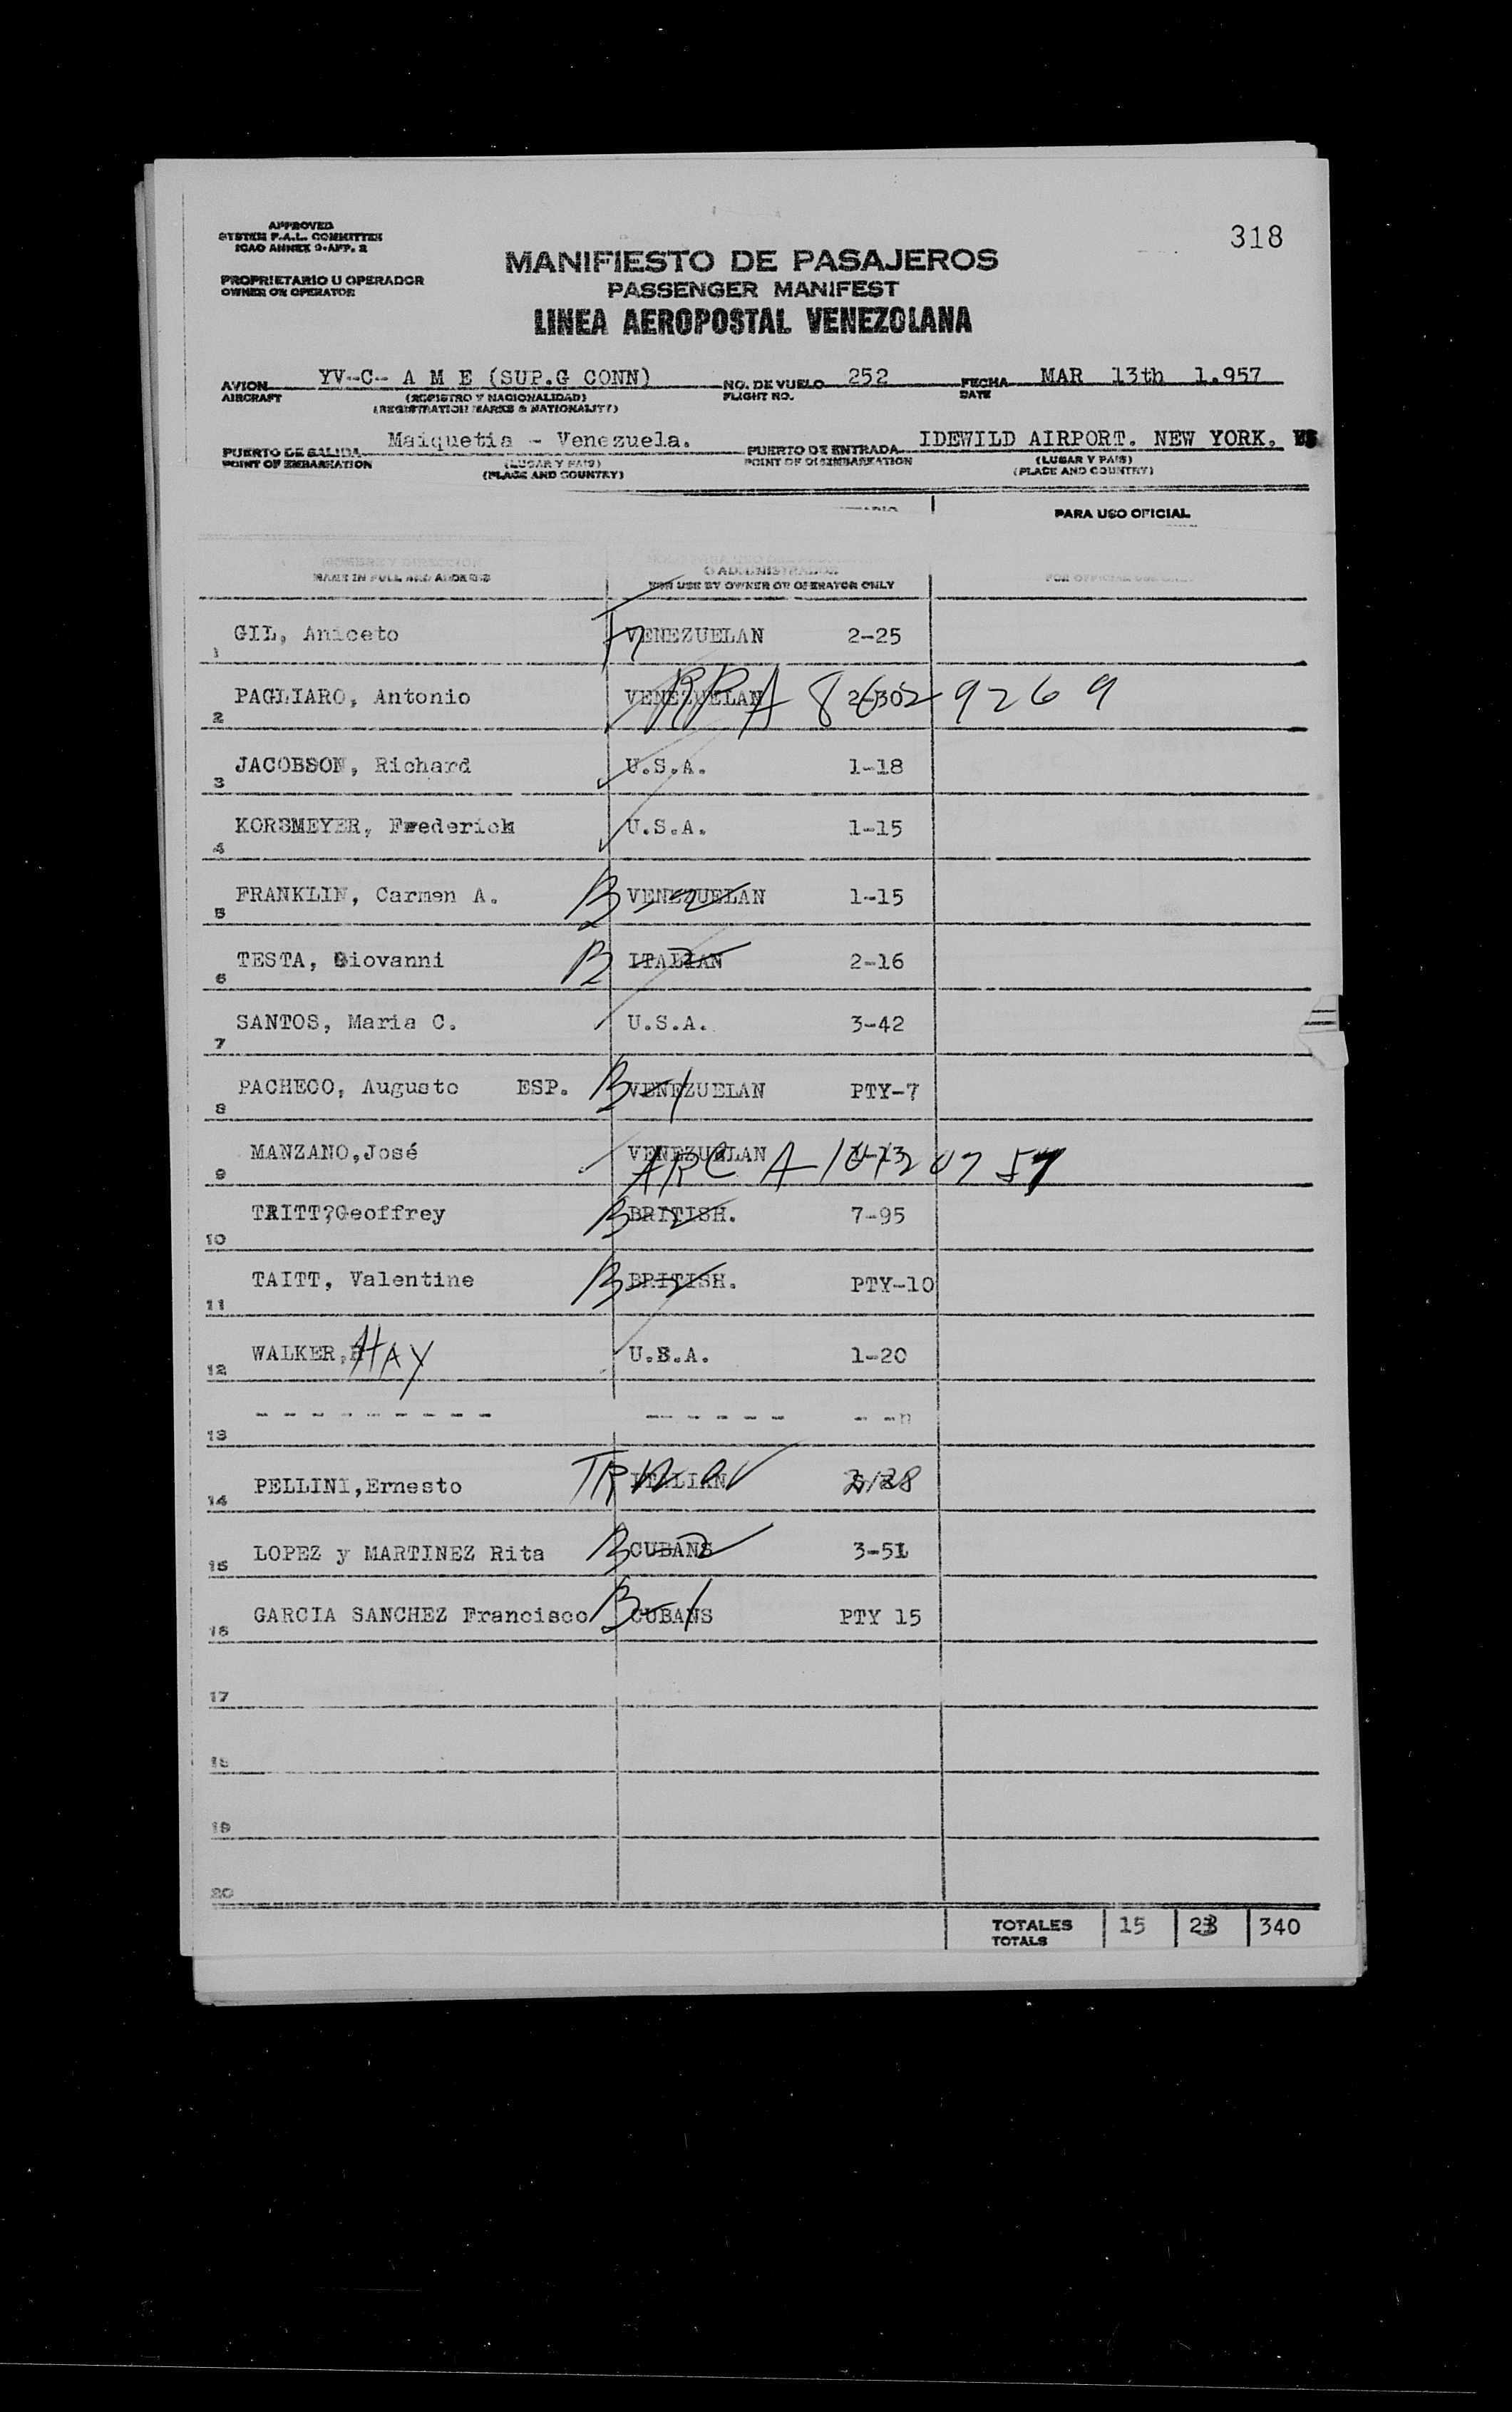 318
APPROVED
SYSTEM F.A.L. COMMITTEE
ICAO ANNEX 9-APP. 2
PROPRIETARIO U OPERADOR
OWNER OR OPERATOR
MANIFIESTO DE PASAJEROS
PASSENGER MANIFEST
LINEA AEROPOSTAL VENEZOLANA
AVION YV-C- A M E (SUP.G CONN) NO. DE VUELO 252 FECHA MAR 13th 1.957
AIRCRAFT (REGISTRO Y NACIONALIDAD) FLIGHT NO. DATE
(REGISTRATION MARKS & NATIONALITY)
PUERTO DE SALIDA Maiquetia - Venezuela. PUERTO DE ENTRADA IDEWILD AIRPORT. NEW YORK. US
POINT OF EMBARKATION (LUGAR Y PAIS) POINT OF DISEMBARKATION (LUGAR Y PAIS)
(PLACE AND COUNTRY) (PLACE AND COUNTRY)
PARA USO OFICIAL
NOMBRE Y DIRECCION
NAME IN FULL AND ADDRESS FOR USE BY OWNER OR OPERATOR ONLY FOR OFFICIAL USE ONLY
1 GIL, Aniceto VENEZUELAN 2-25
2 PAGLIARO, Antonio VENEZUELAN 2-30 RPA 8629269
3 JACOBSON, Richard U.S.A. 1-18
4 KORSMEYER, Frederick U.S.A. 1-15
5 FRANKLIN, Carmen A. B-2 VENEZUELAN 1-15
6 TESTA, Giovanni B2 ITALIAN 2-16
7 SANTOS, Maria C. U.S.A. 3-42
8 PACHECO, Augusto ESP. B-1 VENEZUELAN PTY-7
9 MANZANO,José VENEZUELAN ARC A
10 TAITT?Geoffrey B-2 BRITISH. 7-95
11 TAITT, Valentine B-2 BRITISH. PTY-10
12 WALKER, HAY U.S.A. 1-20
13 - - - - - - - - - - - - - - - -
14 PELLINI,Ernesto ITALIAN 2/28
15 LOPEZ y MARTINEZ Rita B-2 CUBANS 3-51
16 GARCIA SANCHEZ Francisco B-1 CUBANS PTY 15
17
18
19
20
TOTALES 15 23 340
TOTALS